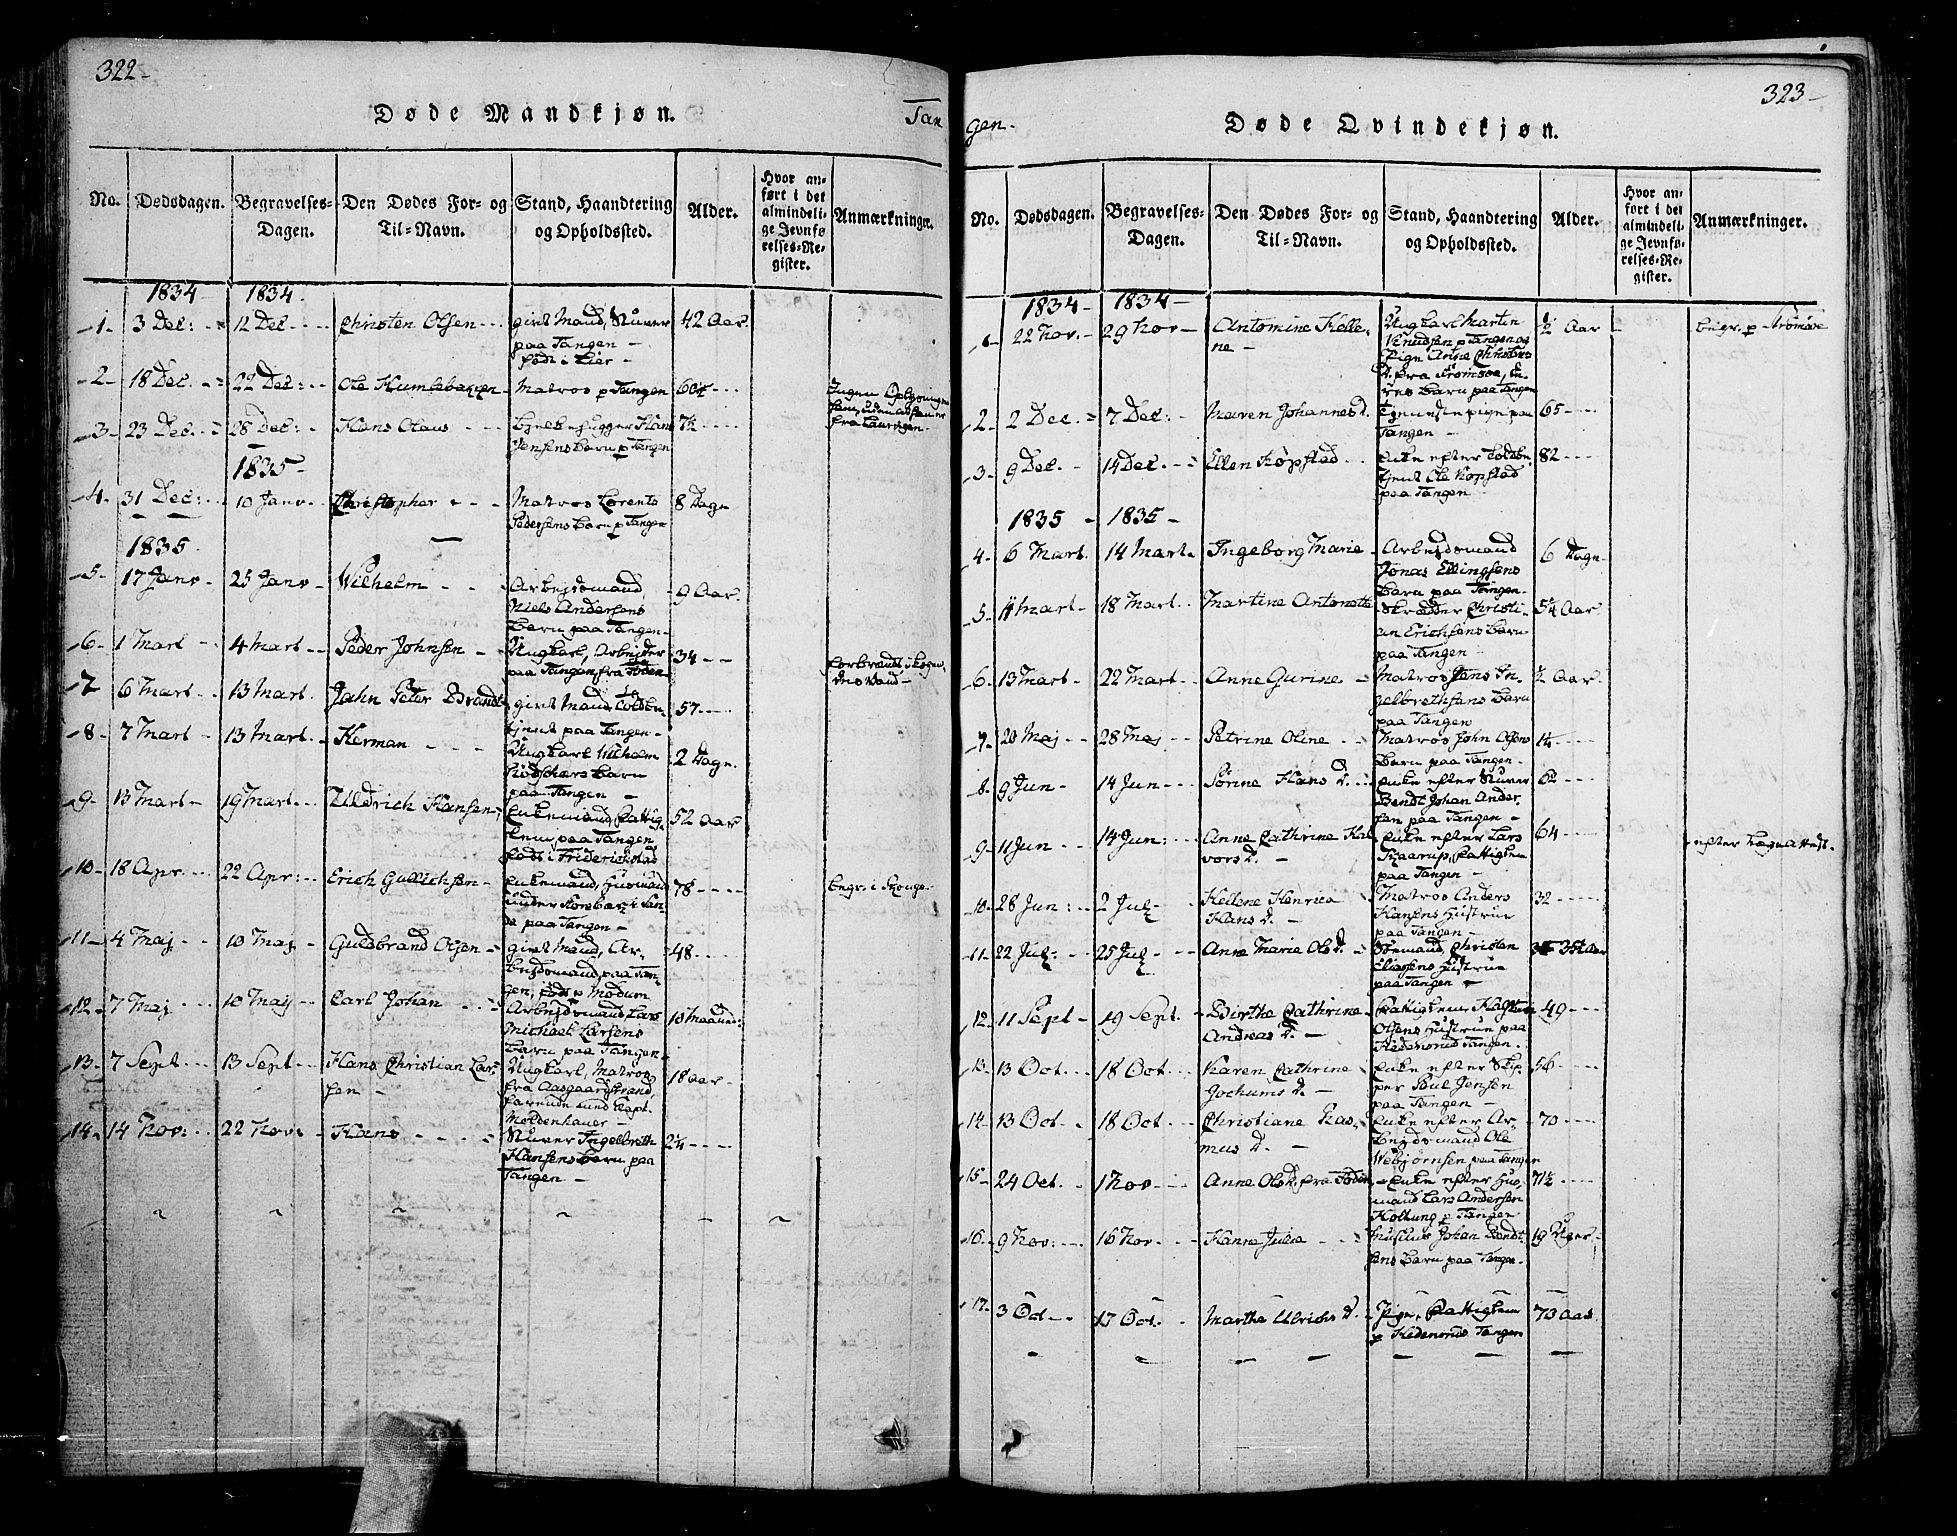 322-
Døde Mandkjøn.
Tan
No. Dødsdagen. Begravelses-Dagen. Den Dødes For- og Til-Navn. Stand, Haandtering og Opholdssted. Alder. Hvor anført i det almindelige Jevnførelses-Register. Anmærkninger.
1834 1834
1- 3 Dec: 12 Dec Christen Olsen givt Mand, Stuver 42 Aar.
paa Tangen
født i Lier
2- 18 Dec. 22 Dec: Ole Humlebækken Matros p Tangen Ingen Oplysning
3- 23 Dec. 28 Dec: Hans Olaus Bjelkehugger Hans 7½
Jensens Barn p Tangen
1835
4- 31 Dec: 10 Janv Christopher Matros Lorents 8 Dage
Pedersens Barn p Tangen
1835
5- 17 Janv 25 Janv Wilhelm Arbejdsmand 9 Aar
Niels Andersens
Barn paa Tangen
6- 1 Mart 4 Mart Peder Johnsen Ungkarl, Arbejder 34
paa Tangen, fra
7 6 Mart 13 Mart. Jahn Peter Brandt givt Mand, Toldbe- 57
tjent paa Tangen
8- 7 Mart 13 Mart. Herman Ungkarl Wilhelm 2 Dage.
Barn
paa Tangen
9- 13 Mart 19 Mart. Uldrich Hansen Enkemand, Fattig- 52 Aar
lem paa Tangen
født i Friderichstad
10- 18 Apr. 22 Apr: Erich Gullichsen Enkemand, Husmand 78 begr. i Skouge
under
paa Tangen
11- 4 Maj 10 Maj Guldbrand Olsen givt Mand, Ar- 48
bejdsmand paa Tan-
gen, født p Modum
12- 7 Maj 10 Maj Carl Johan Arbejdsmand Lars 10 Maaned:
Michael Larsens
Barn paa Tangen
13. 7 Sept 13 Sept Hans Christian Lar- Ungkarl, Matros 18 Aar
sen fra Aasgaardstrand,
farende med Capt.
Moldenhauer
14. 14 Nov: 22 Nov: Hans Stuver Ingelbreth 2¼
Hansens Barn paa
Tangen
323-
gen.
Døde Qvindekjøn.
No. Dødsdagen. Begravelses-Dagen. Den Dødes For- og Til-Navn. Stand, Haandtering og Opholdssted. Alder. Hvor anført i det almindelige Jevnførelses-Register. Anmærkninger.
1834 1834
1- 22 Nov. 29 Nov Antomine Helle- Ungkarl Martin ½ Aar begr. p Strømsøe
ne Knudsen p Tangen og
Pige Anne Christens
D. fra Strømsøe, de-
res Barn paa Tangen
2. 2 Dec. 7 Dec: Maren Johannes D. Tjenestepige paa 65
Tangen
3. 9 Dec. 14 Dec. Ellen Kopstad Enke efter Toldbe- 82
tjent Ole Kopstad
paa Tangen
1835 1835
4- 6 Mart. 14 Mart. Ingeborg Marie Arbejdsmand 6 Dage
Jonas Ellingsens
Barn paa Tangen
5. 11 Mart 18 Mart. Martine Antonette Skrædder Christi- 5¼ Aar
an Erichsens Barn
paa Tangen
6. 13 Mart 22 Mart Anne Gurine Matros Jens In- ½ Aar
gelbrethsens Barn
paa Tangen
7. 20 Maj 28 Maj Petrine Oline Matros John Olsens 1¼
Barn paa Tangen
8. 9 Jun 14 Jun Sørine Hans D. Enke efter Stuver
Bendt Johan Ander-
sen paa Tangen
9- 11 Jun 14 Jun: Anne Cathrine Hal- Enke efter Lars 64 efter
vors D. Skaarup, Fattiglem
paa Tangen
10. 28 Jun: 2 Jul Hellene Henrica Matros Anders 32
Hans D. Hansens Hustrue
paa Tangen
11. 22 Jul: 25 Jul Anne Marie Ols D. Styrmand Christen
Eliasens Hustrue
paa Tangen
12. 11 Sept 19 Sept. Birthe Cathrine Fattiglem 49
Andreas D. Olsens Hustrue paa
Tangen.
13. 13 Oct. 18 Oct. Karen Cathrine Enke efter Skip- 56
Jochums D. per Poul Jensen
paa Tangen
14. 13 Oct 18 Oct Christiane Ras- Enke efter Ar- 70
mus D. bejdsmand Ole
Webjørnsen paa Tangen
15- 24 Oct. 1 Nov Anne Ols D. fra Enke efter Hus- 71½
mand Lars Andersen
p Tangen
16. 9 Nov: 16 Nov Hanne Julie Musicus Johan Bendt- 19 Uger
sens Barn paa Tangen
17. 3 Oct 17 Oct. Marthe Ulrichs D. Pige, Fattiglem 73 Aar
p Tangen